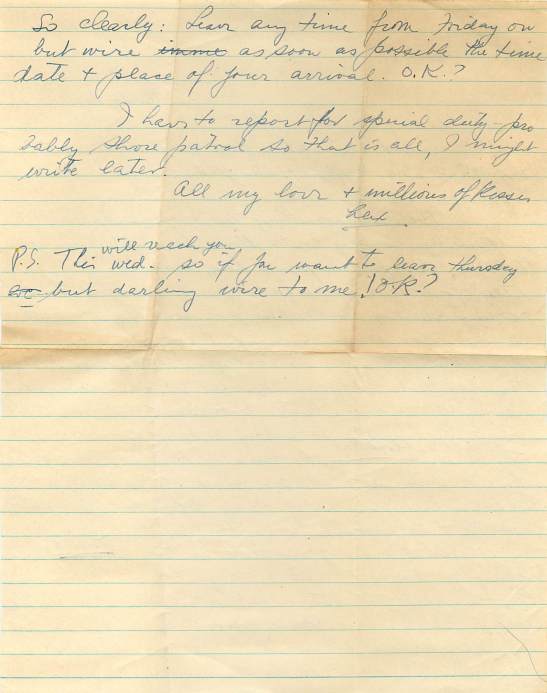 So clearly: Leave any time from Friday on
but wire imme as soon as possible the time
date + place of your arrival. O.K.?
I have to report for special duty - pro
bably shore patrol so that is all, I might
write later.
All my love + millions of kisses
P.S. This will reach you
wed. so if you want to leave thursday
but darling wire to me! O.K.?